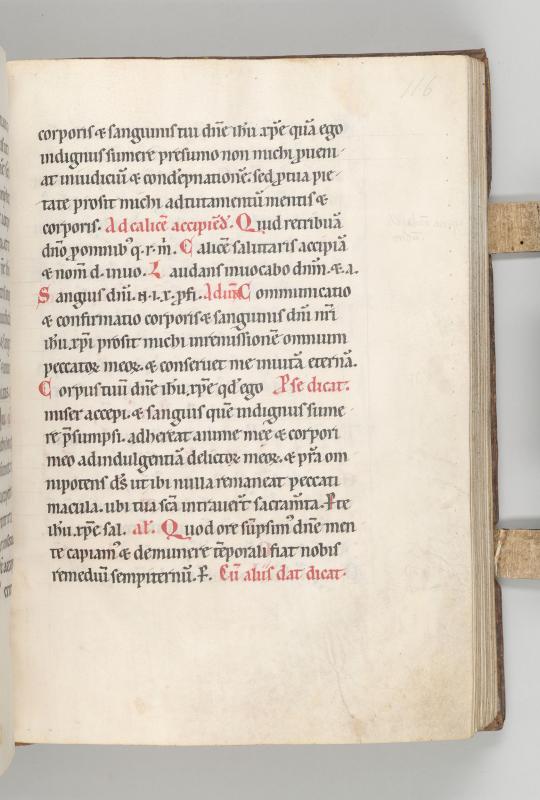 116
corporis & sanguinis tui dn̄e ih̄u xp̄e quā ego
indignus sumere presumo non michi ꝓueni
at in iudiciū & condēpnationē. sed ꝓ tua pie
tate prosit michi ad tutamentū mentis &
corporis. Ad calicē accipiēd̄. Quid retribuā
dn̄o ꝓ omnibꝰ q. r. m̄. Calicē salutaris accipiā
& nom̄ d. inuo. Laudans inuocabo dn̄m. & a.
Sanguis dn̄i. n. i. x. ꝓfi. Communicatio
& confirmatio corporis & sanguinis dn̄i nr̄i
ih̄u xp̄i prosit michi in remissionē omnium
peccatoꝝ meoꝝ. & conseruet me in uitā eternā.
Corpus tuū dn̄e ih̄u xp̄e qd̓ ego Ꝑ se dicat.
miser accepi. & sanguis quē indignus sume
re p̄sumpsi. adhereat anime meę & corpori
meo ad indulgentiā delictoꝝ meoꝝ. & p̄sta om
nipotens ds̄ ut ibi nulla remaneat peccati
macula. ubi tua sc̄a intrauer̄t sacram̄ta. P te
ih̄u xp̄e sal. al̄. Quod ore sūpsimꝰ dn̄e men
te capiamꝰ & de munere tēporali fiat nobis
remediū sempiternū. P. Cū aliis dat dicat.